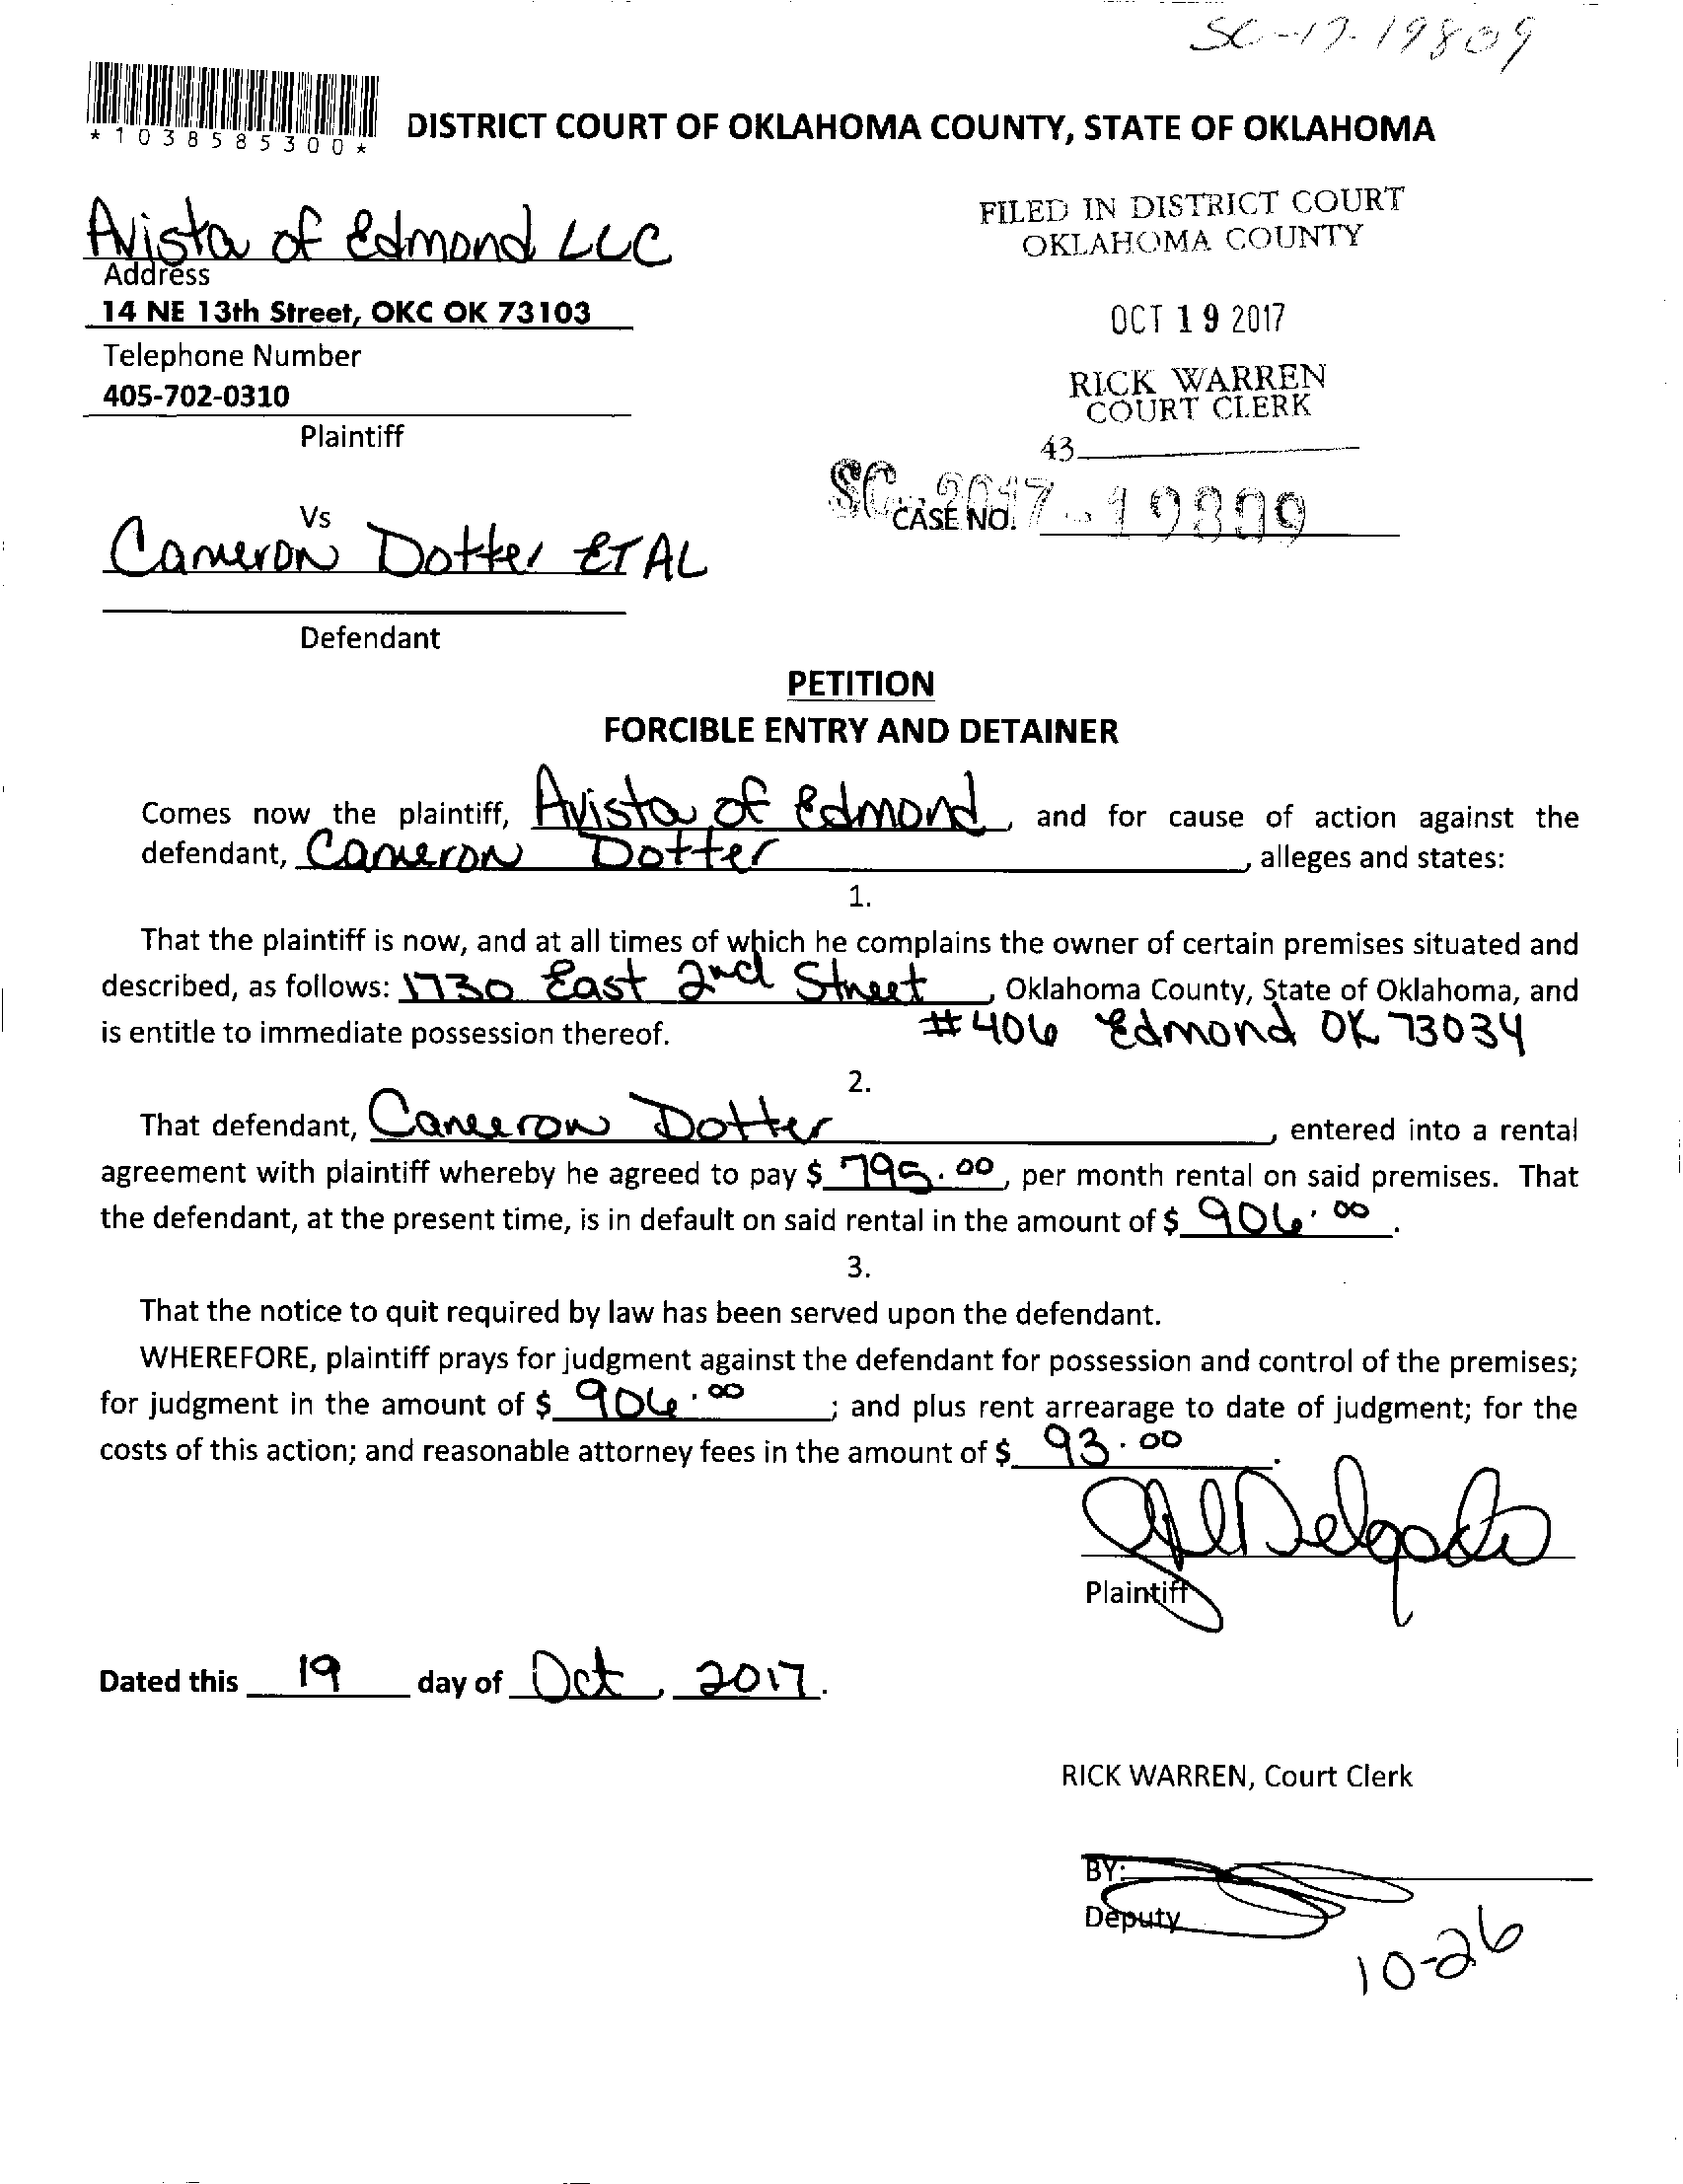 SC-17-19809
*1038585300*
DISTRICT COURT OF OKLAHOMA COUNTY, STATE OF OKLAHOMA
Avista of Edmond LLC
Address
14 NE 13th Street, OKC OK 73103
Telephone Number
405-702-0310
Plaintiff
FILED IN DISTRICT COURT
OKLAHOMA COUNTY
OCT 19 2017
RICK WARREN
COURT CLERK
43
SC-2017-19809
CASE NO.
Vs
Cameron Dotter ET AL
Defendant
PETITION
FORCIBLE ENTRY AND DETAINER
Comes now the plaintiff, Avista of Edmond, and for cause of action against the
defendant, Cameron Dotter, alleges and states:
1.
That the plaintiff is now, and at all times of which he complains the owner of certain premises situated and
described, as follows: 1730 East 2nd Street, Oklahoma County, State of Oklahoma, and
is entitle to immediate possession thereof. #406 Edmond OK 73034
2.
That defendant, Cameron Dotter, entered into a rental
agreement with plaintiff whereby he agreed to pay $ 795.00, per month rental on said premises. That
the defendant, at the present time, is in default on said rental in the amount of $ 906.00.
3.
That the notice to quit required by law has been served upon the defendant.
WHEREFORE, plaintiff prays for judgment against the defendant for possession and control of the premises;
for judgment in the amount of $ 906.00; and plus rent arrearage to date of judgment; for the
costs of this action; and reasonable attorney fees in the amount of $ 93.00.
Jill Delgado
Plaintiff
Dated this 19 day of Oct, 2017.
RICK WARREN, Court Clerk
BY:
Deputy
10-26